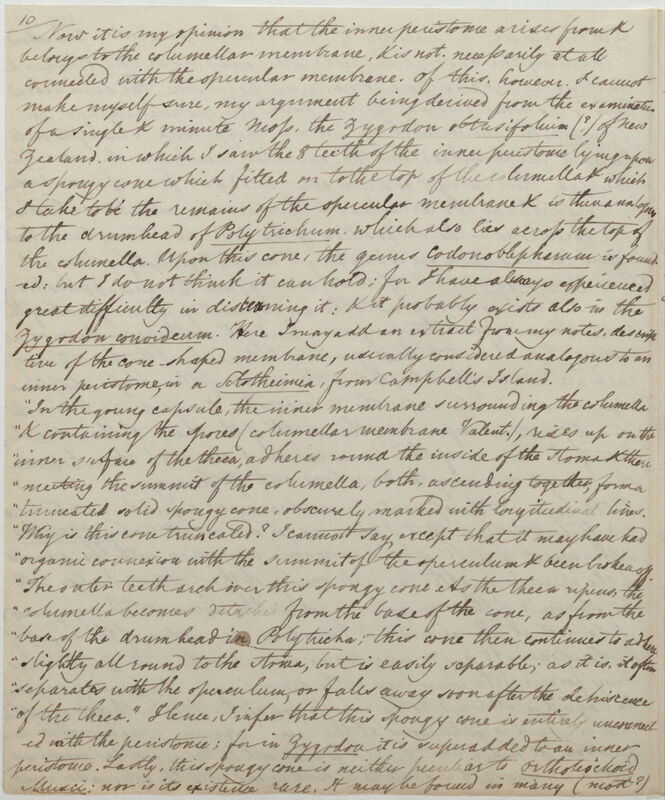 10
Now it is my opinion that the inner peristome arises from &
belongs to the columellar membrane, & is not necessarily at all
connected with the opercular membrane. Of this, however, I cannot
make myself sure, my argument being derived from the examination
of a single & minute Moss, the Zygodon obtusifolium (?) of New
Zealand, in which I saw the 8 teeth of the inner peristome lying upon
a spongy cone which fitted on to the top of the columella & which
I take to be the remains of the opercular membrane & is then analogous
to the drumhead of Polytrichum, which also lies across the top of
the columella. Upon this cone, the genus Codonoblepharum is found-
ed: but I do not think it can hold; for I have always experienced
great difficulty in discerning it; & it probably exists also in the
Zygodon conoideum. Here I may add an extract from my notes, descrip
tive of the cone shaped membrane, usually considered analogous to an
inner peristome, in a Schlotheimia, from Campbell's Island.
"In the young capsule, the inner membrane surrounding the columella
"& containing the spores (columellar membrane Valent.), rises up on the
"inner surface of the theca, adheres round the inside of the stoma & then
"meeting the summit of the columella, both, ascending together, form a
"truncated solid spongy cone, obscurely marked with longitudinal lines.
"Why is this cone truncated? I cannot say, except that it may have had
"organic connexion with the summit of the operculum & been broken off.
"The outer teeth arch over this spongy cone. As the theca ripens, the
"columella becomes detached from the base of the cone, as from the
"base of the drumhead in Polytricha; this cone then continues to adhere
"slightly all round to the stoma, but is easily separable; as it is, it often
"separates with the operculum, or falls away soon after the dehiscence
"of the theca." Hence, I infer that this spongy cone is entirely unconnect-
ed with the peristome; for in Zygodon it is superadded to an inner
peristome. Lastly, this spongy cone is neither peculiar to Orthotrichoid
Musci; nor is its existence rare. It may be found in many (most?)